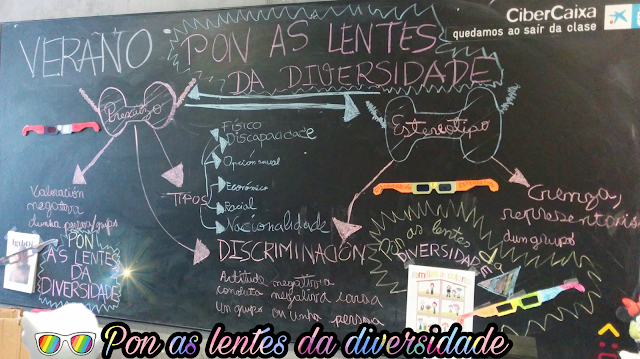 CiberCaixa
quedamos ao saír da clase
VERAÑO
PON AS LENTES
DA DIVERSIDADE
Prexuízo
Estereotipo
Físico
Discapacidade
Opcion sexual
Económico
Racial
Nacionalidade
TIPOS
Valoración
negativa
dunha persoa/grupo
Crenza,
dun grupo
PON
AS LENTES
DA
DIVERSIDADE
DISCRIMINACIÓN
Actitude negativa
conduta negativa
un grupo ou unha persoa
Pon as lentes da
DIVERSIDADE
Pon as lentes da diversidade